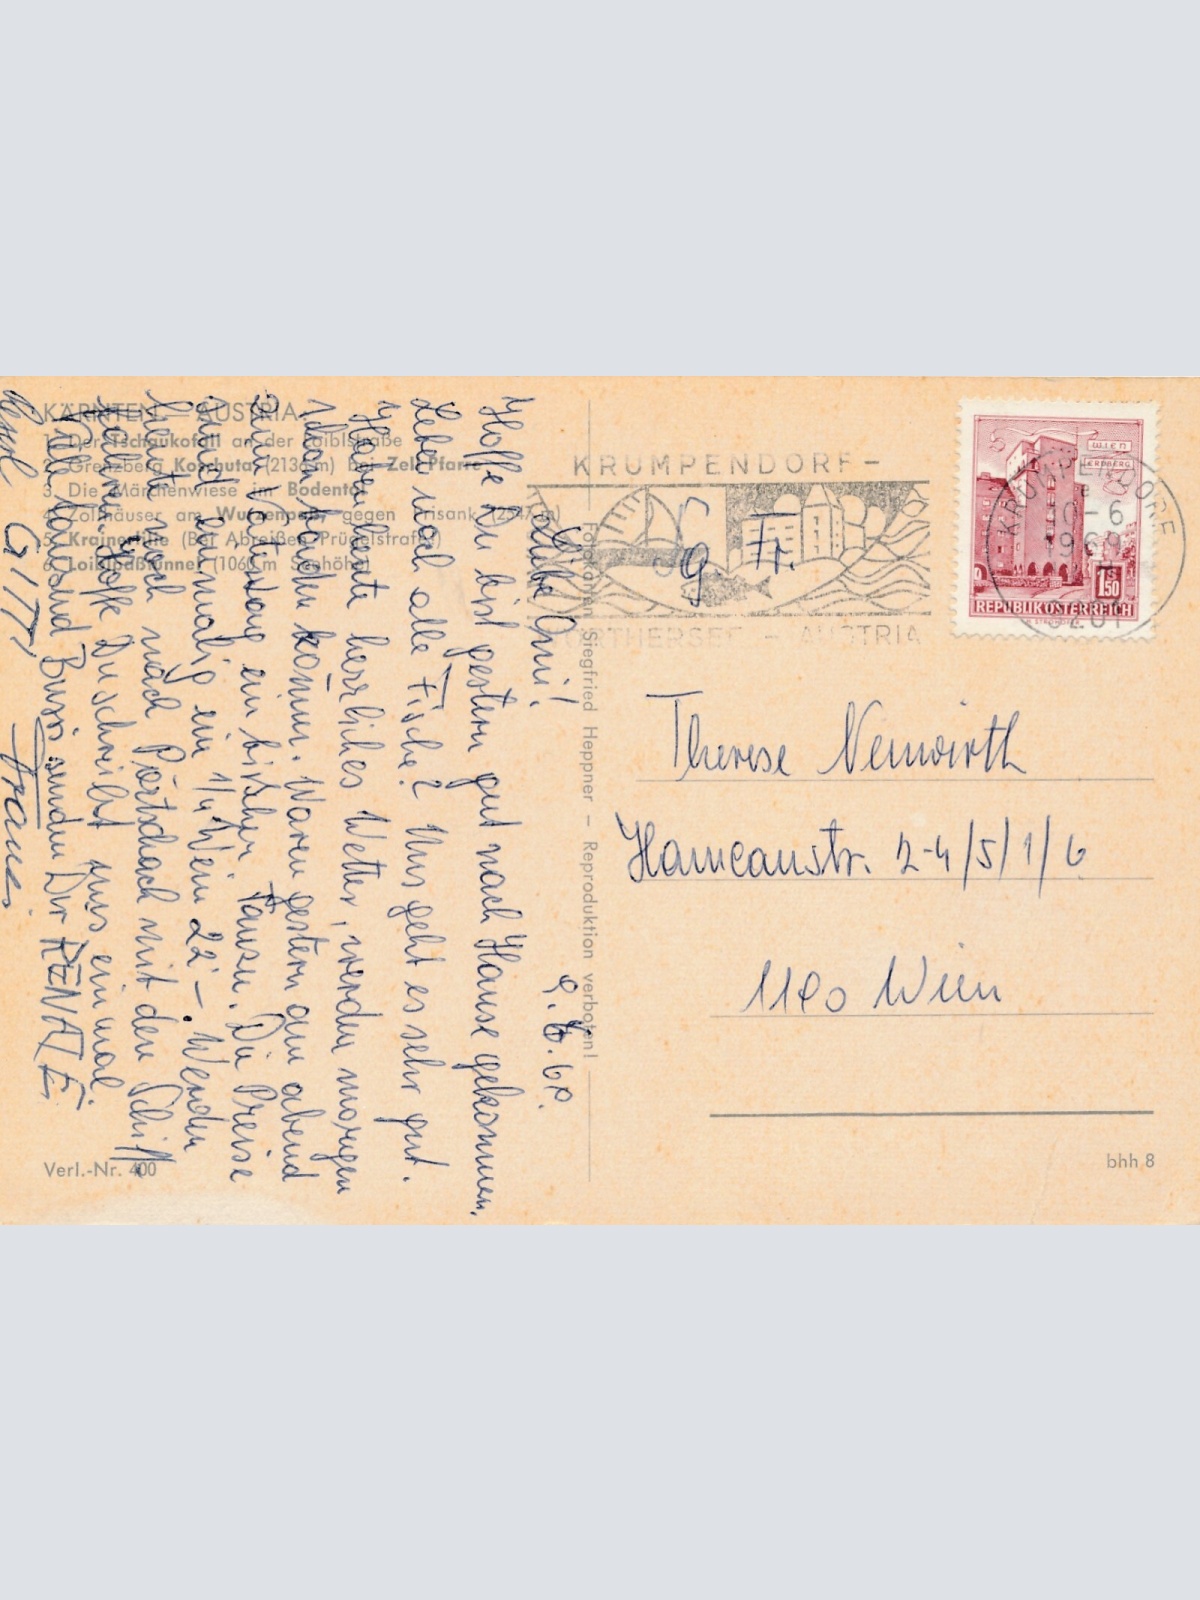 KÄRNTEN — AUSTRIA
1. Der Tschaukofall an der Loiblstraße
2. Grenzberg Koschuta (2136 m) bei Zell Pfarre
3. Die Märchenwiese im Bodental
4. Zollhäuser am Wurzenpaß, gegen Prisank (2547 m)
5. Krainerville (Bei Abreißen Prügelstrafe)
6. Loiblpaßbrunnen (1060 m Seehöhe)
9. 6. 69.
Liebe Omi!
Hoffe Du bist gestern gut nach Hause gekommen.
Leben noch alle Fische? Uns geht es sehr gut.
Haben heute herrliches Wetter, werden morgen
schon baden können. Waren gestern am abend
zum Vatertag ein bißchen tanzen. Die Preise
sind einmalig ein 1/4 Wein 22.–. Werden
heute noch nach Pörtschach mit dem Schiff
fahren. Hoffe Du schreibst uns einmal.
Viele tausend Bussi senden Dir RENATE
GITTI
Franzi
Verl.-Nr. 400
Fotokarten Siegfried Heppner – Reproduktion verboten!
KRUMPENDORF –
WÖRTHERSEE – AUSTRIA
g Fr.
WIEN
ERDBERG
S 1.50
REPUBLIK ÖSTERREICH
KRUMPENDORF
10-6
1969
9201
Therese Neuwirth
Hameaustr. 2-4/5/1/6
1190 Wien
bhh 8